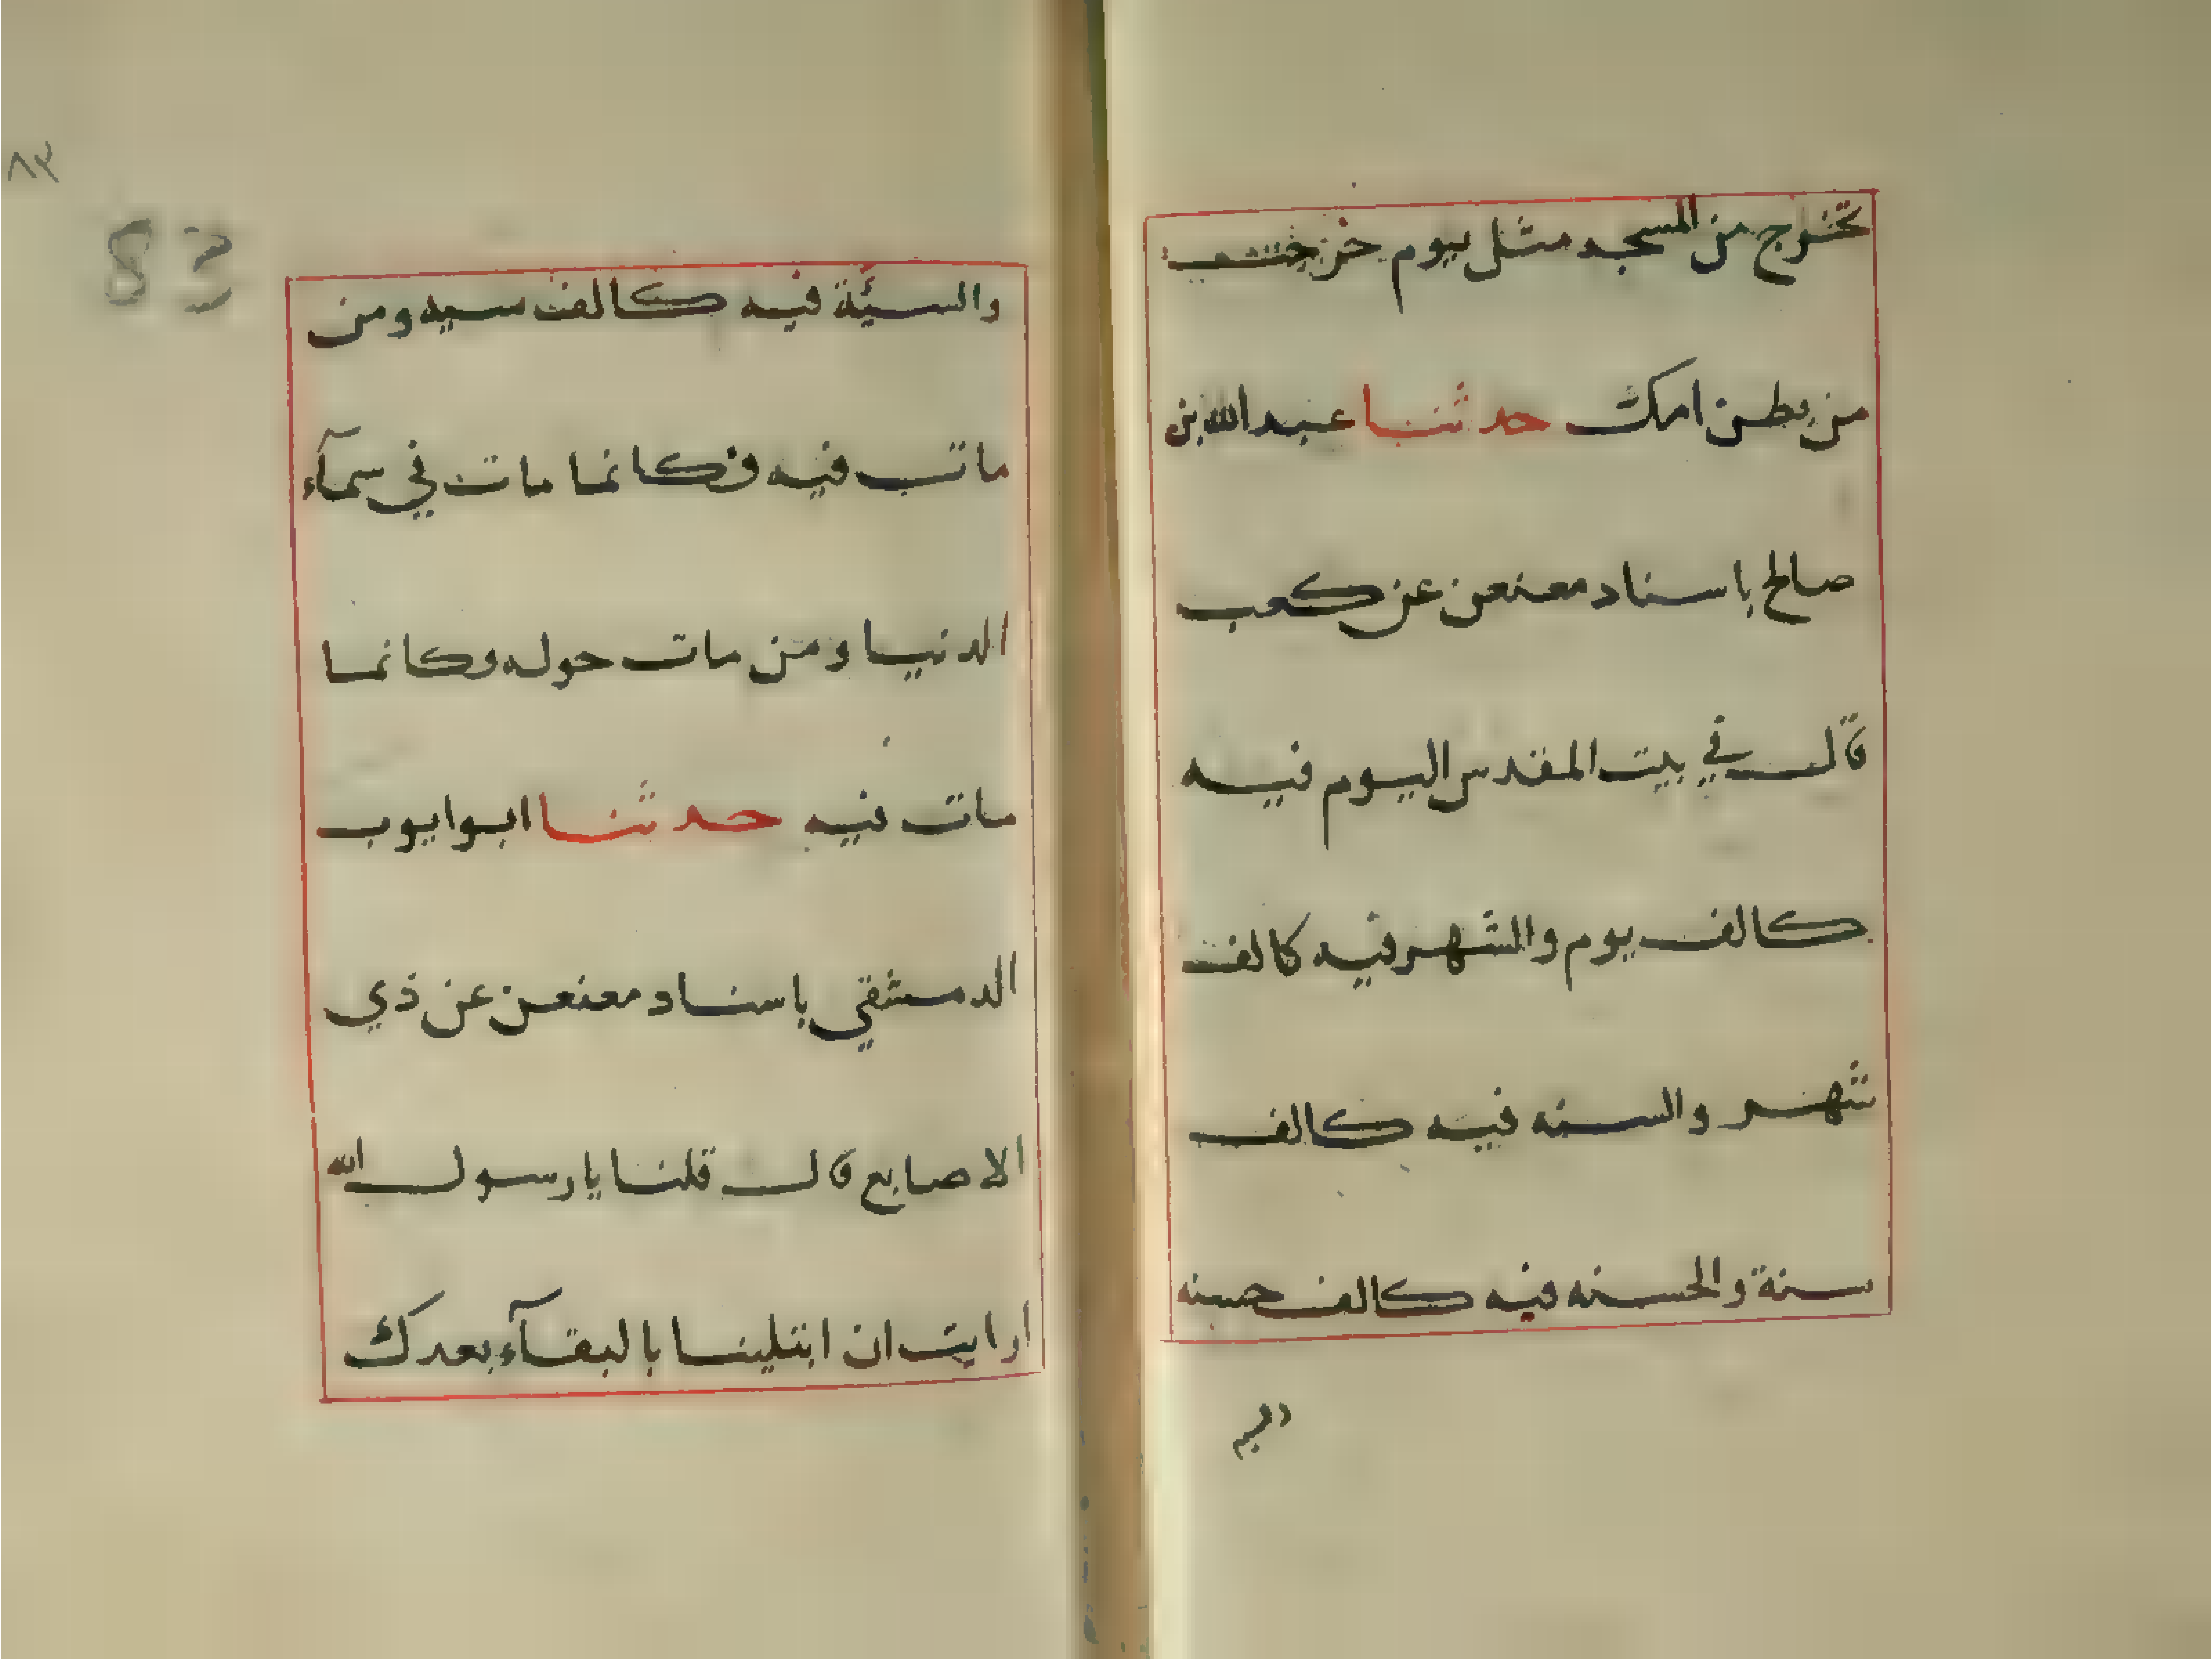 تخرج من المسجد مثل يوم خرجت
من بطن امك حدثنا عبدالله بن
صالح باسناد معنعن عن كعب
قال في بيت المقدس اليوم فيه
كالف يوم والشهر فيه كالف
شهر والسنه فيه كالف
سنة والحسنه فيه كالف حسنه
٨٣
83
والسيئة فيه كالف سيه ومن
مات فيه فكانما مات في سمآء
الدنيا ومن مات حوله فكانما
مات فيه حدثنا ابو ايوب
الدمشقي باسناد معنعن عن ذي
الاصابع قال قلنا يا رسول الله
ارايت ان ابتلينا بالبقآء بعدك